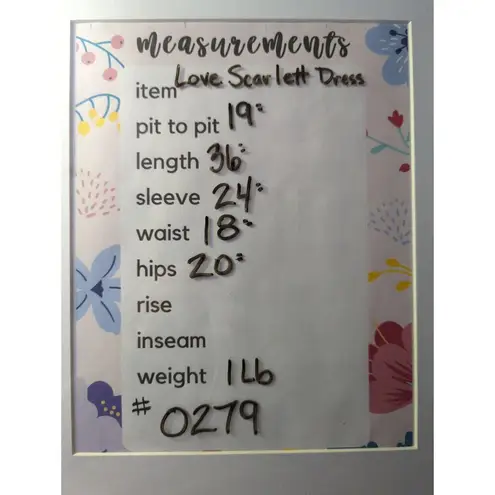 measurements
item Love Scarlett Dress
pit to pit 19"
length 36"
sleeve 24"
waist 18"
hips 20"
rise
inseam
weight 1 Lb
# 0279